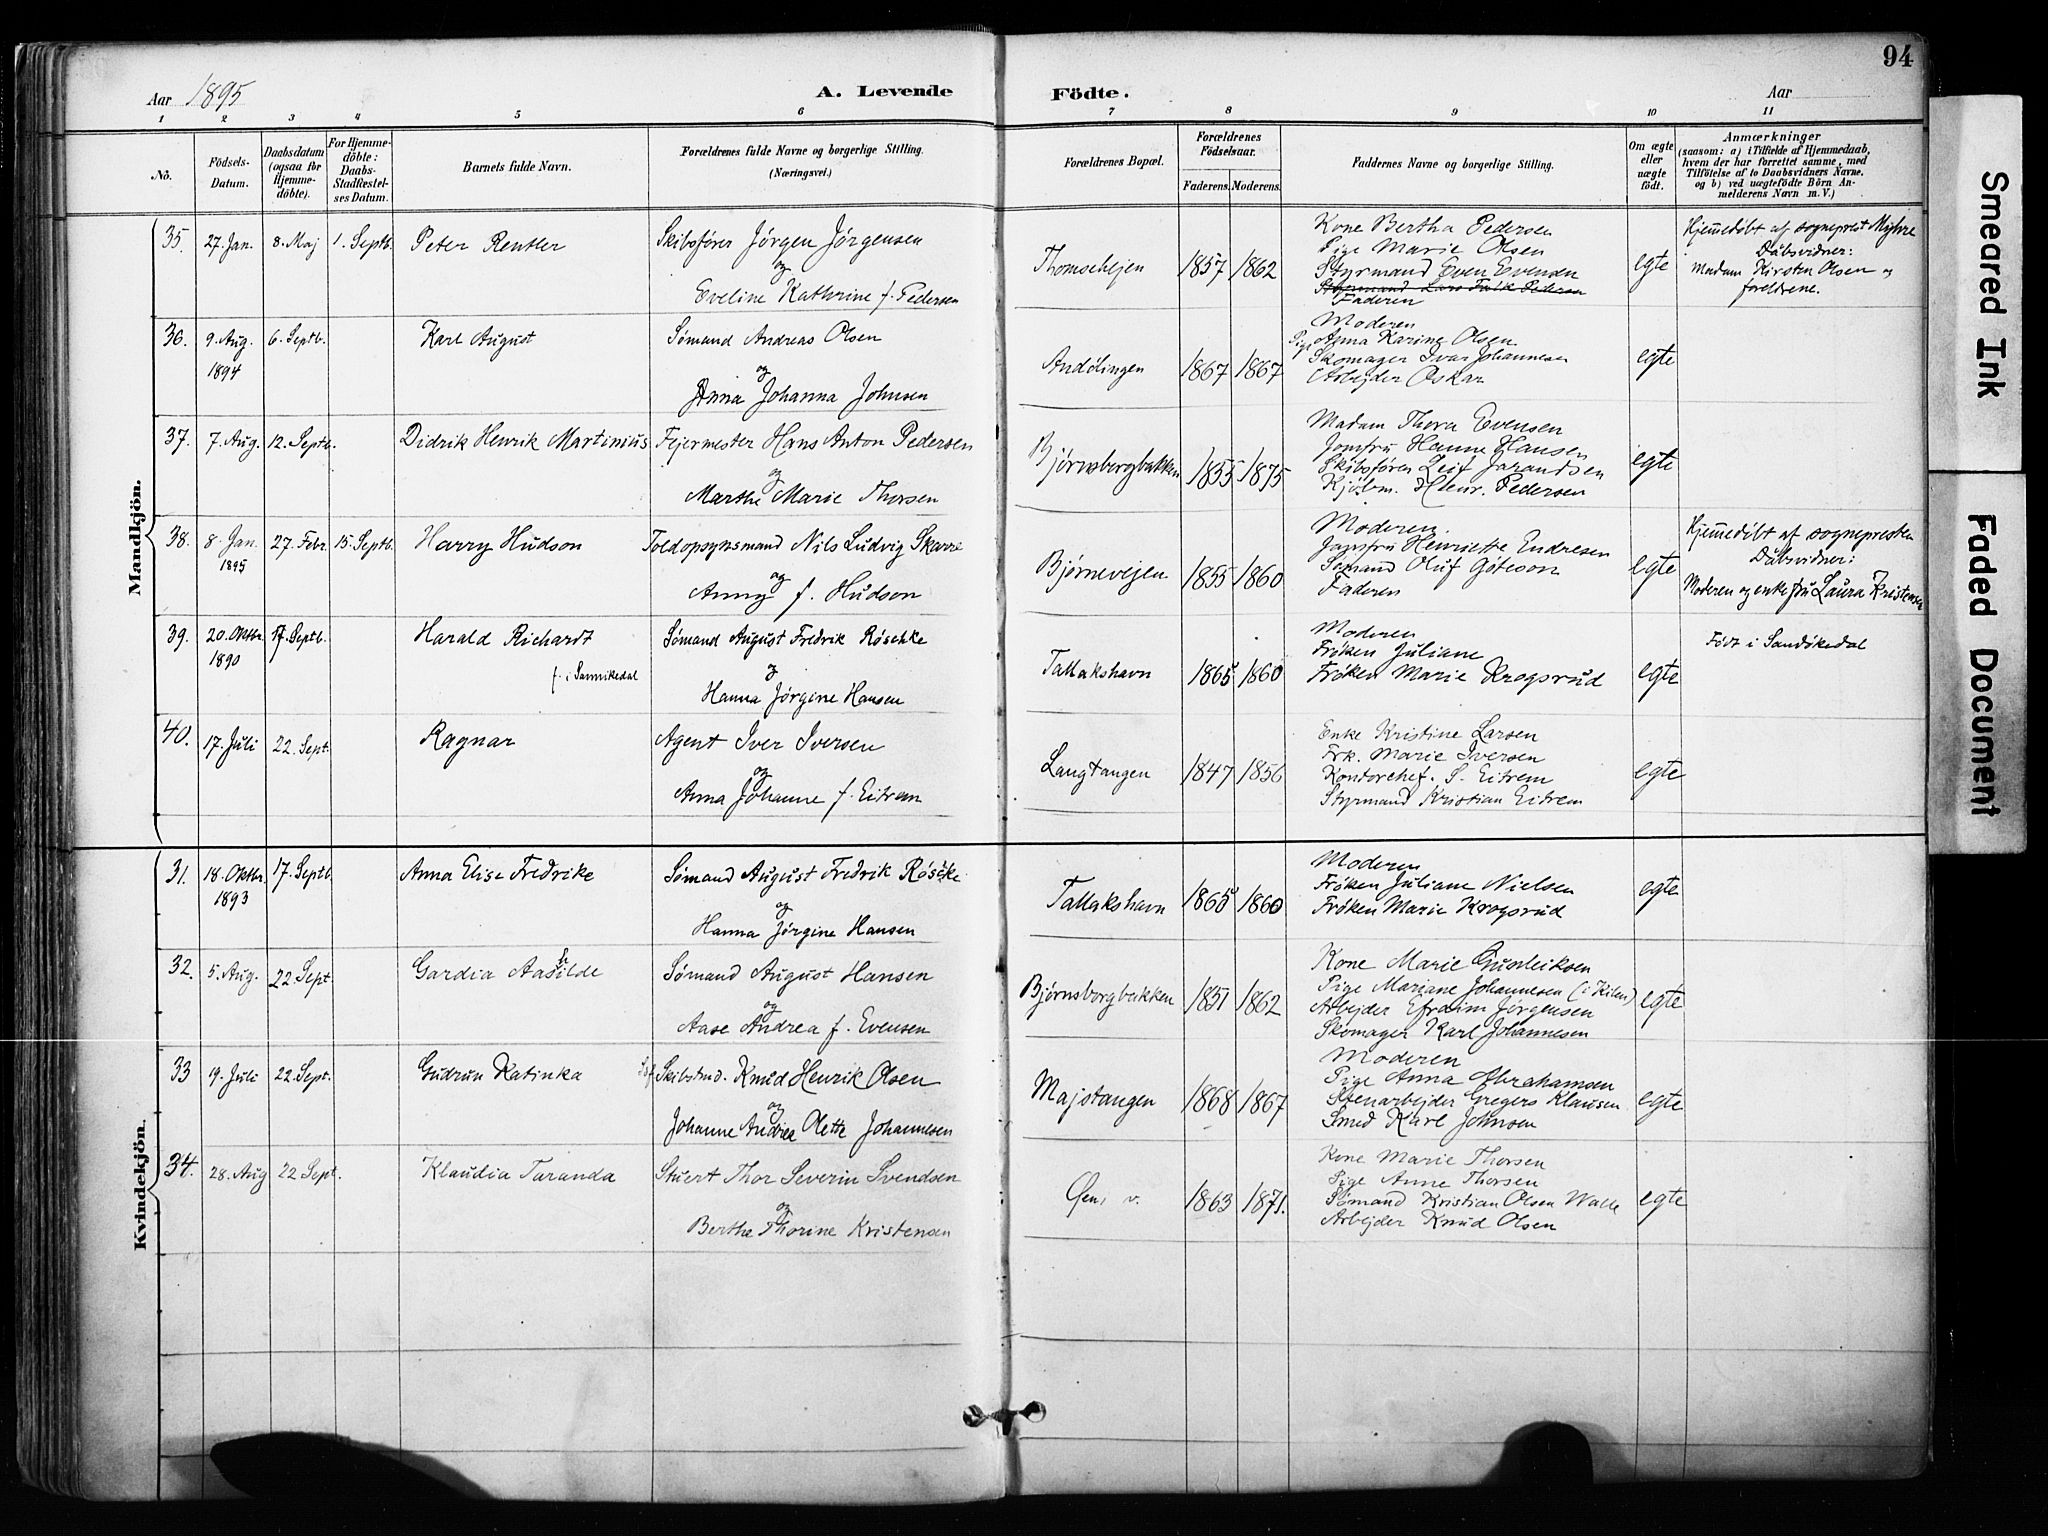 94
Aar 1895
A. Levende Födte.
Aar
1 2 3 4 5 6 7 8 9 10 11
No.
Födsels-Datum.
Daabsdatum (ogsaa for Hjemme-döbte).
For Hjemme-döbte: Daabs-Stadfæstel-ses Datum.
Barnets fulde Navn.
Forældrenes fulde Navne og borgerlige Stilling.
(Næringsvei.)
Forældrenes Bopæl.
Forældrenes Födselsaar.
Faderens. Moderens.
Faddernes Navne og borgerlige Stilling.
Om ægte eller uægte födt.
Anmærkninger
(saasom: a) i Tilfælde af Hjemmedaab,
hvem der har forrettet samme, med
Tilföielse af to Daabsvidners Navne,
og b) ved uægtefödte Börn An-
melderens Navn m. V.)
Mandkjön.
35. 27. Jan. 8. Maj 1. Septb. Peter Rentler
Skibsfører Jørgen Jørgensen
og
Eveline Kathrine f. Pedersen
Thomsehejen 1857 1862
Kone Bertha Pedersen
Pige Marie Olsen
Styrmand Even Evensen
Styrmand Lars Falk Pedersen
Faderen
egte
Hjemedöbt af sogneprest Myhre
Dåbsvidner:
Madam Kirsten Olsen og
foreldrene.
36. 9. Aug. 1894 6. Septb. Karl August
Sømand Andreas Olsen
og
Anna Johanna Johnsen
Andölingen 1867 1867
Moderen
Pige Anna Karine Olsen
Skomager Ivar Johannesen
Arbejder Oskar
egte
37. 7. Aug. 12. Septb. Didrik Henrik Martinius
Fejermester Hans Anton Pedersen
og
Marthe Marie Thorsen
Bjørnsborgbakken 1855 1875
Madam Thora Evensen
Jomfru Hanne Hansen
Skibsfören Leif Jarandsen
Kjöbm. Henr. Pedersen
egte
38. 8. Jan. 1895 27. Febr. 15. Septb. Harry Hudson
Toldopsynsmand Nils Ludvig Skarre
og
Anny f. Hudson
Bjørnevejen 1855 1860
Moderen.
Jomfru Henriette Endresen
Sømand Oluf Göteson
Faderen
egte
Hjemedöbt af sognepresten
Dåbsvidner:
Moderen og enkefru Laura Kristensen
39. 20. Oktbr. 1890 17. Septb. Harald Richardt
f. i Sannikedal
Sømand August Fredrik Röschke
og
Hanna Jørgine Hansen
Tallakshavn 1865 1860
Moderen
Frøken Juliane
Frøken Marie Krogsrud
egte
Født i Sandökedal
40. 17. Juli 22. Sept. Ragnar
Agent Iver Iversen
og
Anna Johanne f. Eitrem
Langtangen 1847 1856
Enke Kristine Larsen
Frk. Marie Iversen
Kontorchef. S. Eitrem
Styrmand Kristian Eitrem
egte
Kvindekjön.
31. 18. Oktbr. 1893 17. Septb. Anna Elise Fredrike
Sømand August Fredrik Röschke
og
Hanna Jørgine Hansen
Tallakshavn 1865 1860
Moderen
Frøken Juliane Nielsen
Frøken Marie Krogsrud
egte
32. 5. Aug. 22. Sept. Gardia Aashilde
Sømand August Hansen
og
Aase Andrea f. Evensen
Bjørnsborgbakken 1851 1862
Kone Marie Gunleiksen
Pige Mariane Johannesen (i Kilen)
Arbejder Efraim Jørgensen
Skomager Karl Johannesen
egte
33 19. Juli 22. Sept. Gudrun Katinka
Skibstmd. Knud Henrik Olsen
og
Johanne Andrea Olette Johannesen
Majstangen 1868 1867
Moderen
Pige Anna Abrahamsen
Stenarbejder Gregers Klausen
Smed Karl Johnsen
egte
34. 28. Aug 22 Sept. Klaudia Taranda
Stuert Thor Severin Svendsen
og
Berthe Thorine Kristensen
Øen, v. 1863 1871.
Kone Marie Thorsen
Pige Anne Thorsen
Sømand Kristian Olsen Walle
Arbejder Knud Olsen
egte
Smeared Ink
Faded Document